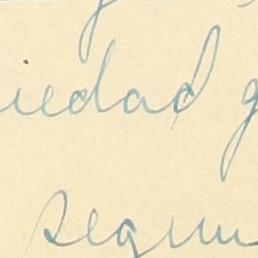 iedad g
segun